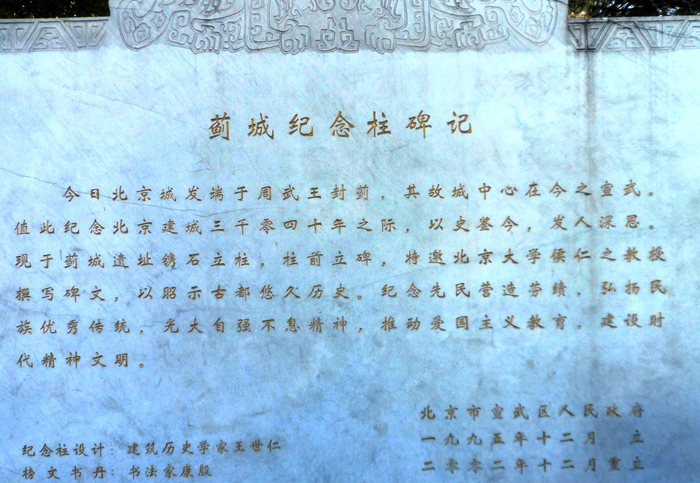 蓟城纪念柱碑记
今日北京城发端于周武王封蓟，其故城中心在今之宣武。
值此纪念北京建城三千零四十年之际，以史鉴今，发人深思。
现于蓟城遗址镌石立柱，柱前立碑，特邀北京大学侯仁之教授
撰写碑文，以昭示古都悠久历史。纪念先民营造劳绩，弘扬民
族优秀传统，光大自强不息精神，推动爱国主义教育，建设时
代精神文明。
北京市宣武区人民政府
一九九五年十二月 立
二零零二年十二月重立
纪念柱设计：建筑历史学家王世仁
榜文书丹：书法家康殷